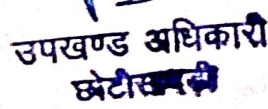 उपखण्ड अधिकारी
छोटीसादड़ी